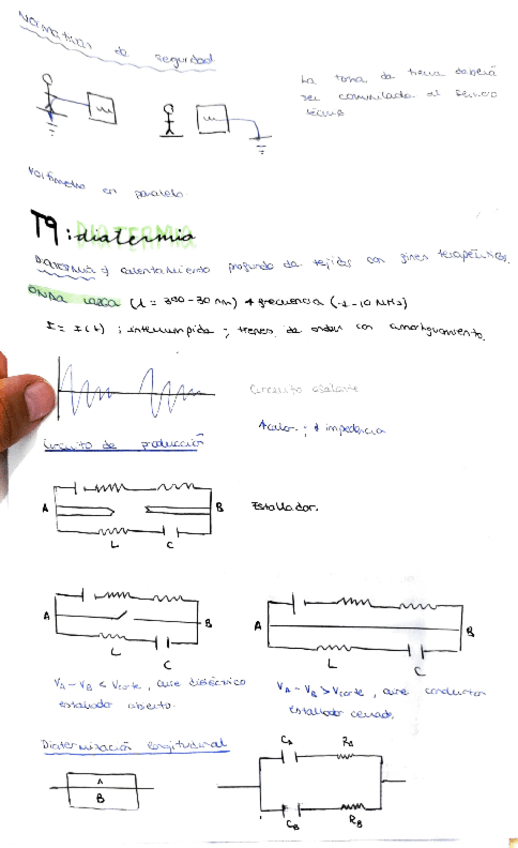 Normativas de seguridad
La toma de tierra deberá
ser conmutada al servicio
técnico
Voltímetro en paralelo.
T9: diatermia
DIATERMIA
Diatermia → calentamiento profundo de tejidos con fines terapéuticos.
ONDA LARGA (λ = 300-30 m) frecuencia (1-10 MHz)
I = I(t) ; interrumpida ; trenes de ondas con amortiguamiento.
Circuito oscilante
calor ; impedancia
Circuito de producción
A B Estallador.
L C
A B A B
L C L C
VA - VB < Vcorte, aire dieléctrico
estallador abierto.
VA - VB > Vcorte, aire conductor
estallador cerrado.
Diatermización longitudinal
CA RA
A
B
CB RB